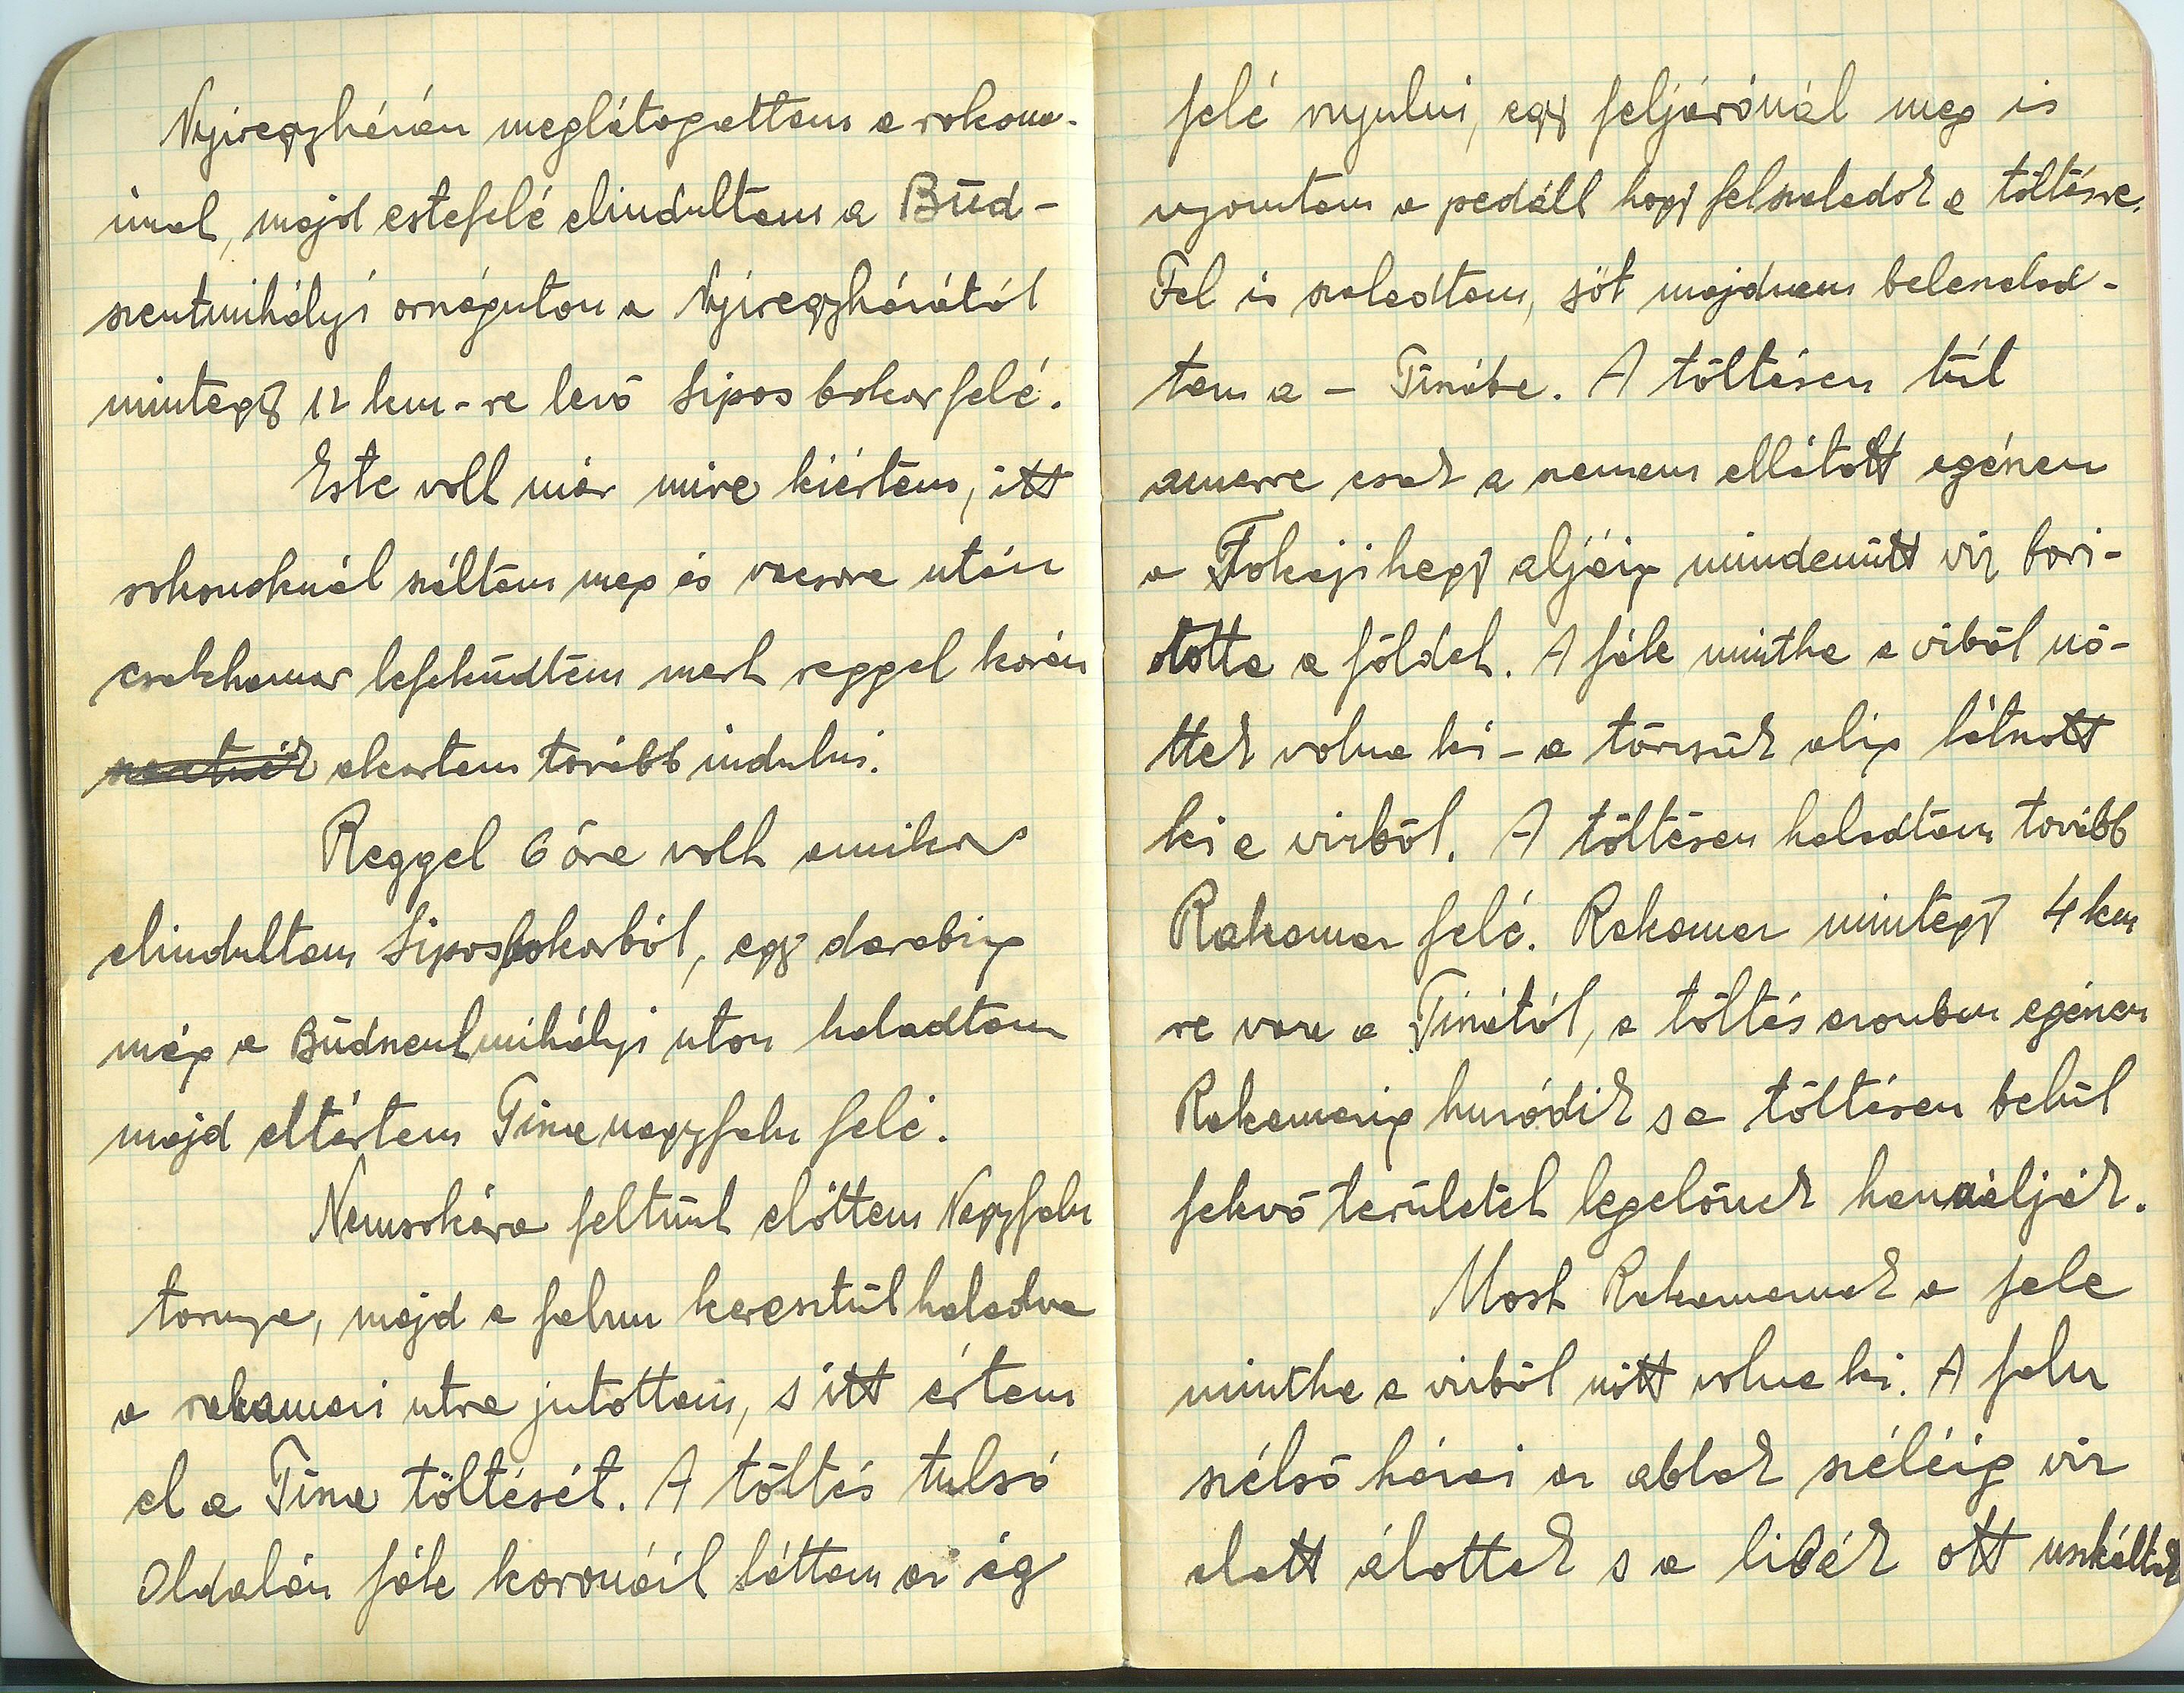 Nyiregyházán meglátogattam a rokona-
imat, majd estefelé elindultam a Büd-
szentmihályi országuton a Nyiregyházától
mintegy 12 km-re levő Sipos bokor felé.
Este volt már mire kiértem, itt
rokonoknál száltam meg és vacsora után
csakhamar lefeküdtem mert reggel korán
akartam tovább indulni.
Reggel 6 óra volt amikor
elindultam Siposbokorból, egy darabig
még a Büdszentmihályi uton haladtam
majd eltértem Tiszanagyfalu felé.
Nemsokára feltünt előttem Nagyfalu
tornya, majd a falun keresztül haladva
a rakamazi utra jutottam, s itt értem
el a Tisza töltését. A töltés tulsó
oldalán fák koronáit láttam az ég
felé nyulni, egy feljárónál meg is
nyomtam a pedált hogy felszaladok a töltésre.
Fel is szaladtam, sőt majdnem beleszalad-
tam a – Tiszába. A töltésen túl
amerre csak a szemem ellátott egészen
a Tokaji hegy aljáig mindenütt viz bori-
totta a földet. A fák mintha a vizből nő-
ttek volna ki – a törzsük alig látszott
ki a vizből. A töltésen haladtam tovább
Rakamaz felé. Rakamaz mintegy 4 km
re van a Tiszától, a töltés azonban egészen
Rakamazig huzódik s a töltésen belül
fekvő területet legelőnek használják.
Most Rakamaznak a fele
mintha a vizből nőtt volna ki. A falu
szélső házai az ablak széléig viz
alatt álottak s a libák ott uszkáltak